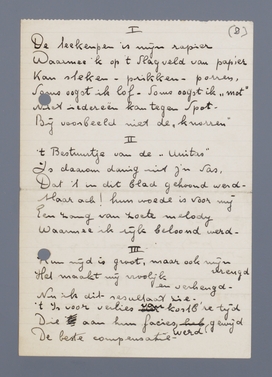 I (2)
De teekenpen is mijn rapier
Waarmee ik op 't slagveld van papier
Kan steken - prikken - porren,
Soms oogst ik lof - Soms oogst ik „mot"
Niet iedereen kan tegen spot -
Bij voorbeeld niet de „knorren"
II
't Bestuurtje van de „Unitas"
Is daarom danig in z'n sas,
Dat 't in dit blad gehoond werd -
Maar ach! hun woede is voor mij
Een zang van zoete melody
Waarmee ik rijk beloond werd -
III
Hun nijd is groot, maar ook mijn vreugd
Het maakt mij vroolijk en verheugd -
Nu ik dit resultaat zie -
't Is voor verlies van kostb're tijd
Die aan hun facies gewijd
De beste compensatie werd